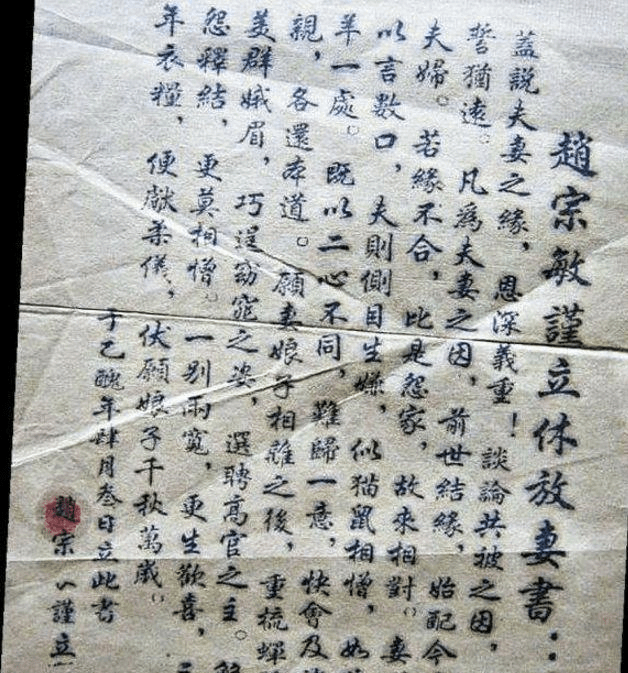 趙宗敏謹立休放妻書：
蓋說夫妻之緣，恩深義重！談論共被之因，
誓猶遠。凡為夫妻之因，前世結緣，始配今
夫婦。若緣不合，比是怨家，故來相對。妻
以言數口，夫則側目生嫌，似猫鼠相憎，如
羊一處。既以二心不同，難歸一意，快會及
親，各還本道。願妻娘子相離之後，重梳蟬
美群娥眉，巧逞窈窕之姿，選聘高官之主。
怨釋結，更莫相憎。一別兩寬，更生歡喜，
年衣糧，便獻柔儀，伏願娘子千秋萬歲。
于乙醜年肆月叁日立此書
趙宗 謹立